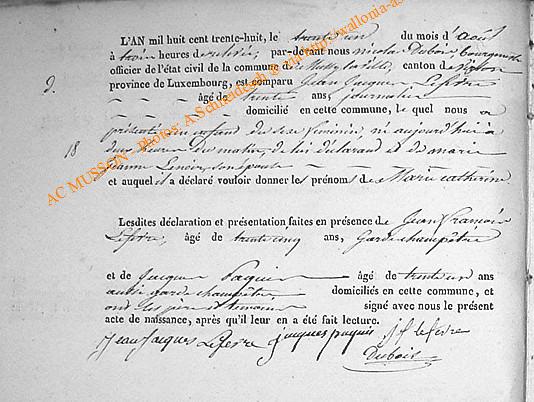 L'AN mil huit cent trente-huit, le trente un du mois d'aout
à trois heures de relevée, par-devant nous nicolas Dubois Bourgmestre
officier de l'état civil de la commune de Musson, canton de Virton
province de Luxembourg, est comparu Jean Jacques Lefevre
âgé de trente ans, journalier
domicilié en cette commune, lequel nous a
9.
présenté un enfant du sexe féminin, né aujourd'hui à
18
deux heures du matin, de lui déclarant et de marie
jeanne, son épouse
et auquel il a déclaré vouloir donner les prénoms de Marie catherine.
Lesdites déclaration et présentation faites en présence de Jean François
Lefevre, âgé de trente cinq ans, Garde champêtre
et de Jacques Paquis âgé de trente un ans
aussi garde champêtre, domiciliés en cette commune, et
ont les père et temoins signé avec nous le présent
acte de naissance, après qu'il leur en a été fait lecture.
Jean Jacques Lefevre jacques paquis j f lefevre
Dubois
AC MUSSON - Photos: A.Schneidesch @ via http://wallonia-as